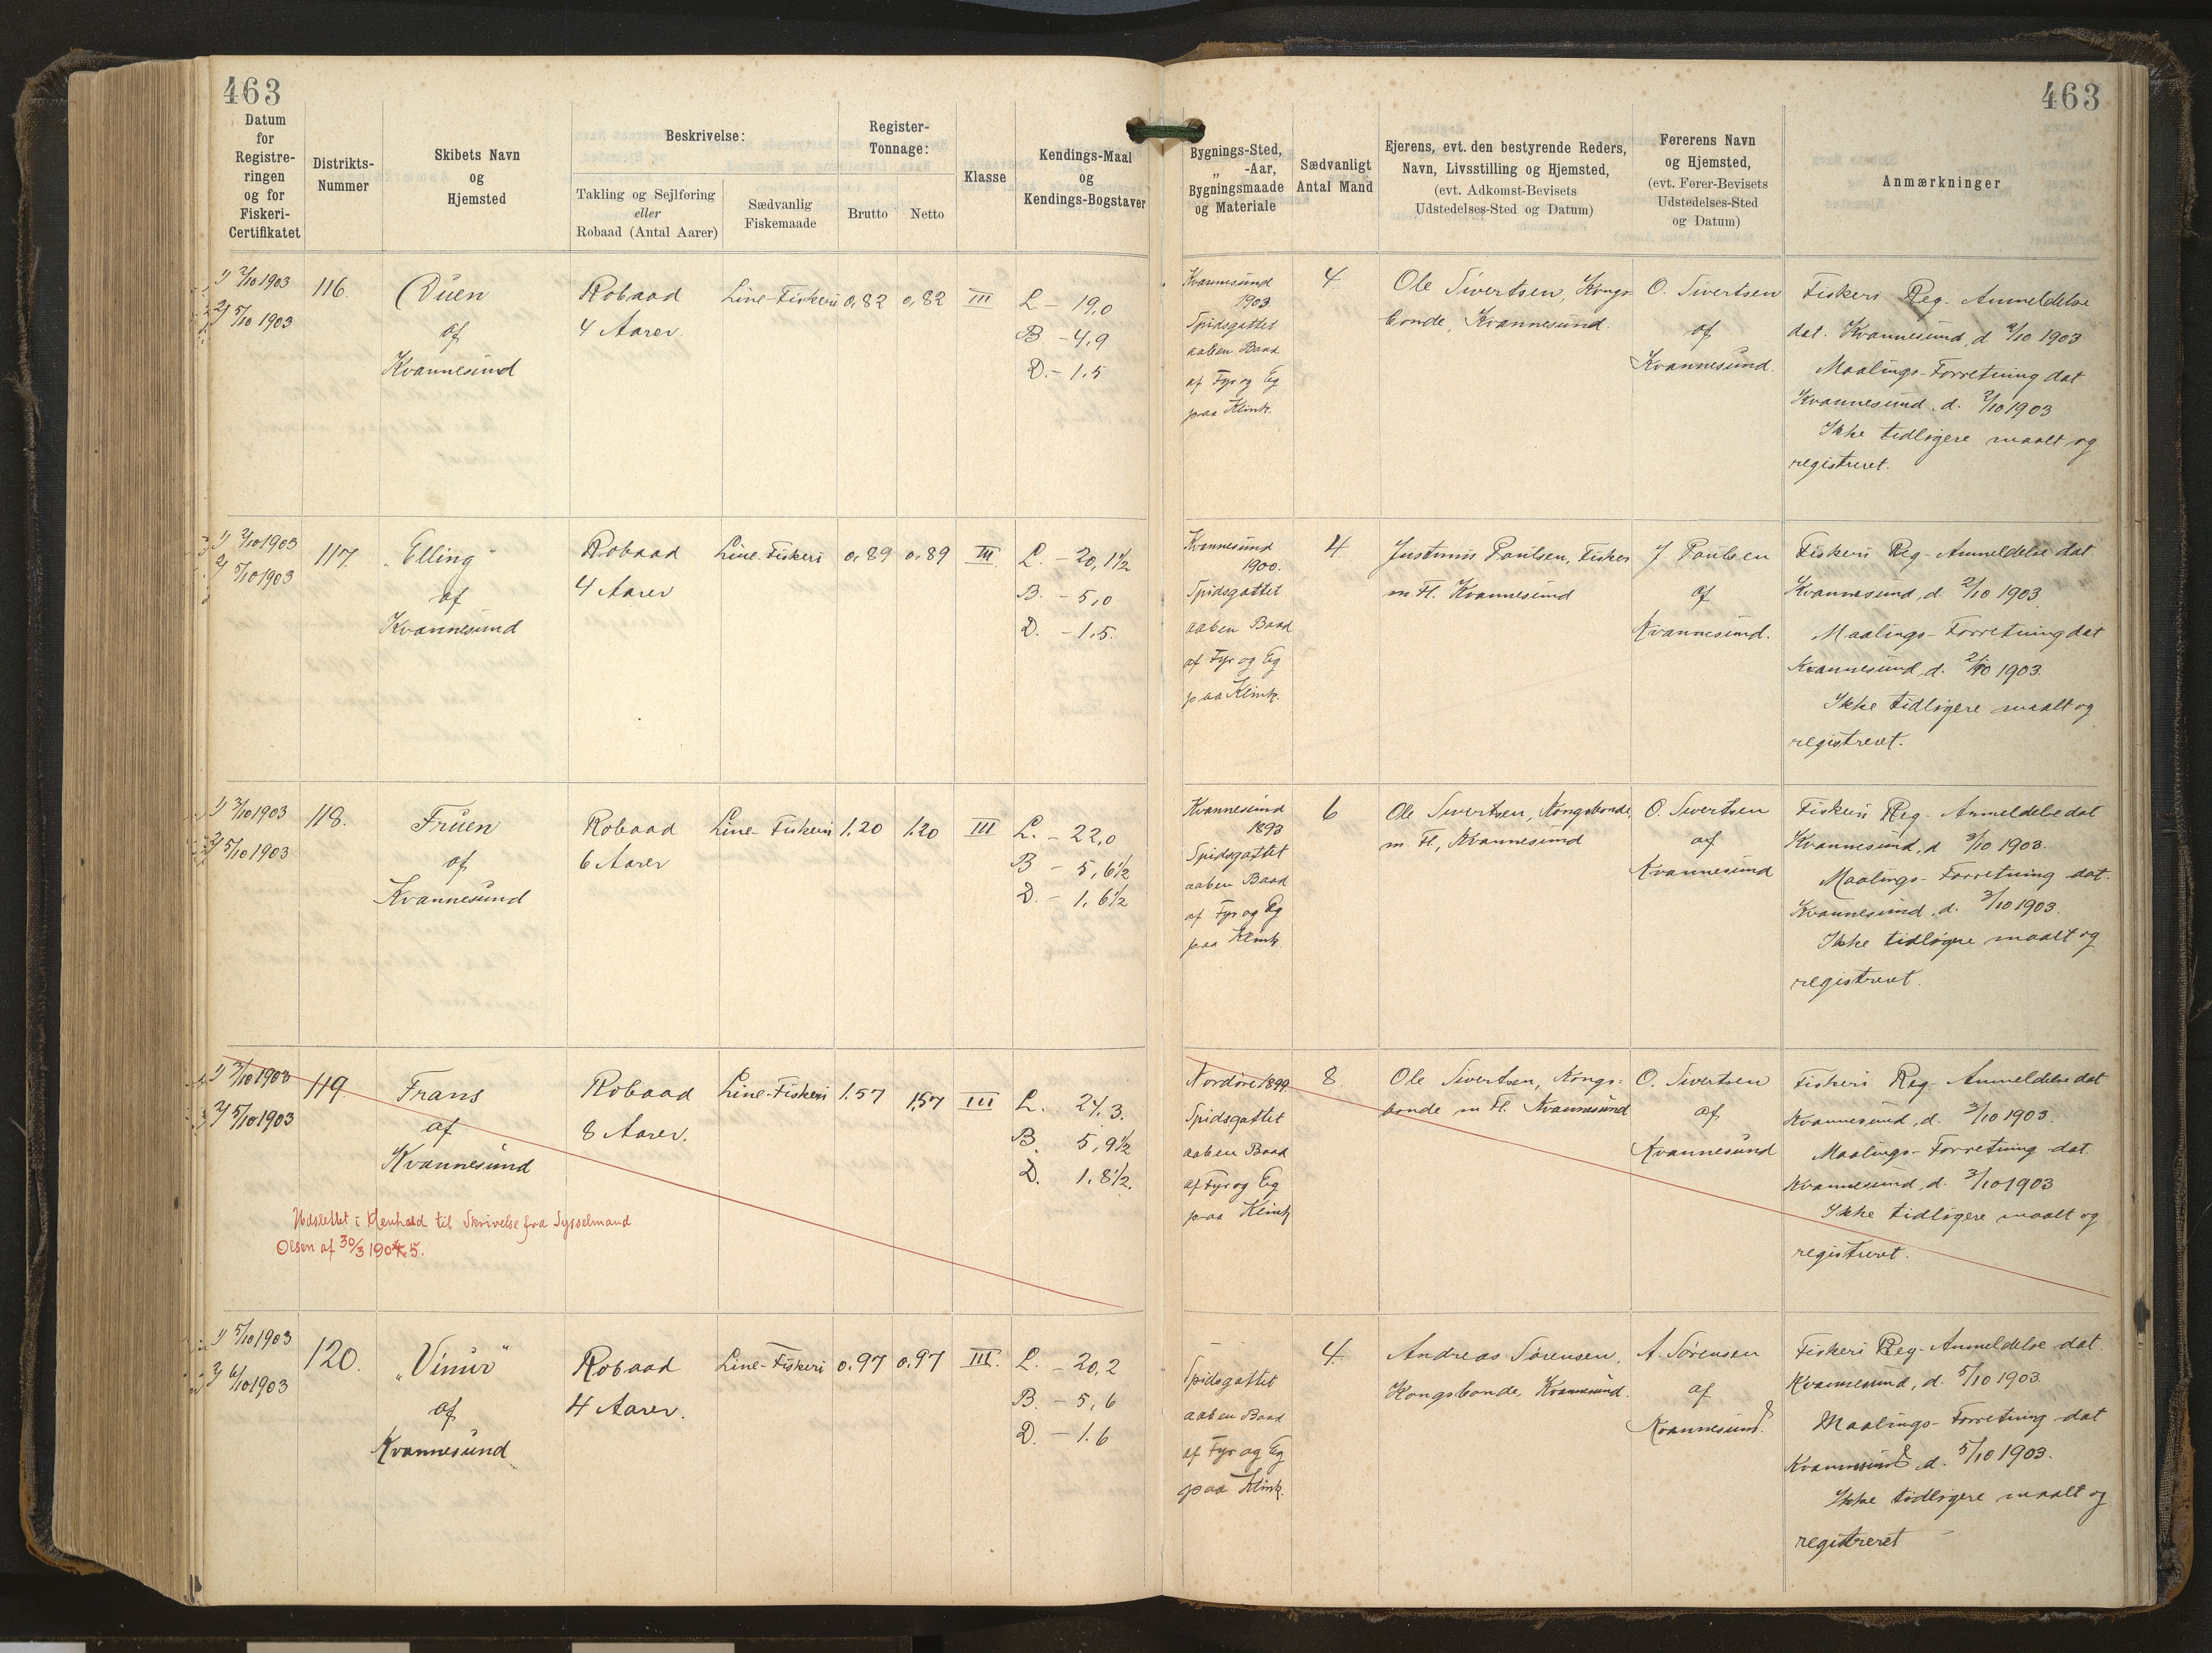 463
463
Datum
for
Registre-
ringen
og for
Fiskeri-
Certifikatet
Distrikts-
Nummer
Skibets Navn
og
Hjemsted
Beskrivelse:
Takling og Sejlføring
eller
Robaad (Antal Aarer)
Sædvanlig
Fiskemaade
Register-
Tonnage:
Brutto
Netto
Klasse
Kendings-Maal
og
Kendings-Bogstaver
Bygnings-Sted,
„ -Aar,
Bygningsmaade
og Materiale
Sædvanligt
Antal Mand
Ejerens, evt. den bestyrende Reders,
Navn, Livsstilling og Hjemsted,
(evt. Adkomst-Bevisets
Udstedelses-Sted og Datum)
Førerens Navn
og Hjemsted,
(evt. Fører-Bevisets
Udstedelses-Sted
og Datum)
Anmærkninger
1) 2/10 1903
2) 5/10 1903
116.
Duen
af
Kvannesund
Robaad
4 Aarer.
Line-Fiskeri
0,82
0,82
III
L - 19,0
B - 4,9
D. - 1.5
Kvannesund
1903
Spidsgattet
aaben Baad
af Fyr og Eg
paa Klink.
4.
Ole Sivertsen, Kongs-
bonde, Kvannesund.
O. Sivertsen
af
Kvannesund.
Fiskeri Reg- Anmeldelse
dat. Kvannesund, d 2/10 1903
Maalings-Forretning dat
Kvannesund, d. 2/10 1903
Ikke tidligere maalt og
registreret.
1) 2/10 1903
2) 5/10 1903
117.
„Elling"
af
Kvannesund
Robaad
4 Aarer
Line-Fiskeri
0,89
0,89
III
L. - 20,1½
B. - 5,0
D. - 1,5.
Kvannesund
1900.
Spidsgattet
aaben Baad
af Fyr og Eg
paa Klink.
4
Justinus Poulsen, Fisker
m Fl. Kvannesund
J. Poulsen
af
Kvannesund.
Fiskeri Reg- Anmeldelse dat
Kvannesund, d. 2/10 1903
Maalings-Forretning dat
Kvannesund, d. 2/10 1903.
Ikke tidligere maalt og
registreret.
1) 3/10 1903
2) 5/10 1903
118.
Fruen
af
Kvannesund
Robaad
6 Aarer
Line-Fiskeri
1,20
1,20
III
L. - 22,0
B - 5,6½
D. - 1,6½
Kvannesund
1893
Spidsgattet
aaben Baad
af Fyr og Eg
paa Klink
6
Ole Sivertsen, Kongsbonde,
m. Fl, Kvannesund
O. Sivertsen
af
Kvannesund
Fiskeri Reg- Anmeldelse dat
Kvannesund, d 3/10 1903.
Maalings-Forretning dat.
Kvannesund, d. 3/10 1903.
Ikke tidligere maalt og
registreret.
1) 3/10 1903
2) 5/10 1903
119.
Frans
af
Kvannesund
Robaad
8 Aarer.
Line-Fiskeri
1,57
1,57
III
L. 24,3.
B. 5,9½
D. 1,8½.
Udslettet i Henhold til Skrivelse fra Sysselmand
Olsen af 30/3 1904.5.
Nordøre 1899
Spidsgattet
aaben Baad
af Fyr og Eg
paa Klink
8.
Ole Sivertsen, Kongs-
bonde m Fl. Kvannesund
O. Sivertsen
af
Kvannesund
Fiskeri Reg- Anmeldelse dat
Kvannesund, d. 3/10 1903.
Maalings-Forretning dat.
Kvannesund, d. 3/10 1903
Ikke tidligere maalt og
registreret.
1) 5/10 1903
2) 6/10 1903
120.
„Vimur"
af
Kvannesund
Robaad
4 Aarer.
Line-Fiskeri
0.97
0.97
III.
L. - 20,2
B. - 5,6
D. - 1.6
Spidsgattet
aaben Baad
af Fyr og Eg
paa Klink.
4.
Andreas Sørensen,
Kongsbonde, Kvannesund.
A. Sørensen
af
Kvannesund.
Fiskeri Reg- Anmeldelse dat.
Kvannesund, d. 5/10 1903.
Maalings-Forretning dat
Kvannesund, d. 5/10 1903.
Ikke tidligere maalt og
registreret